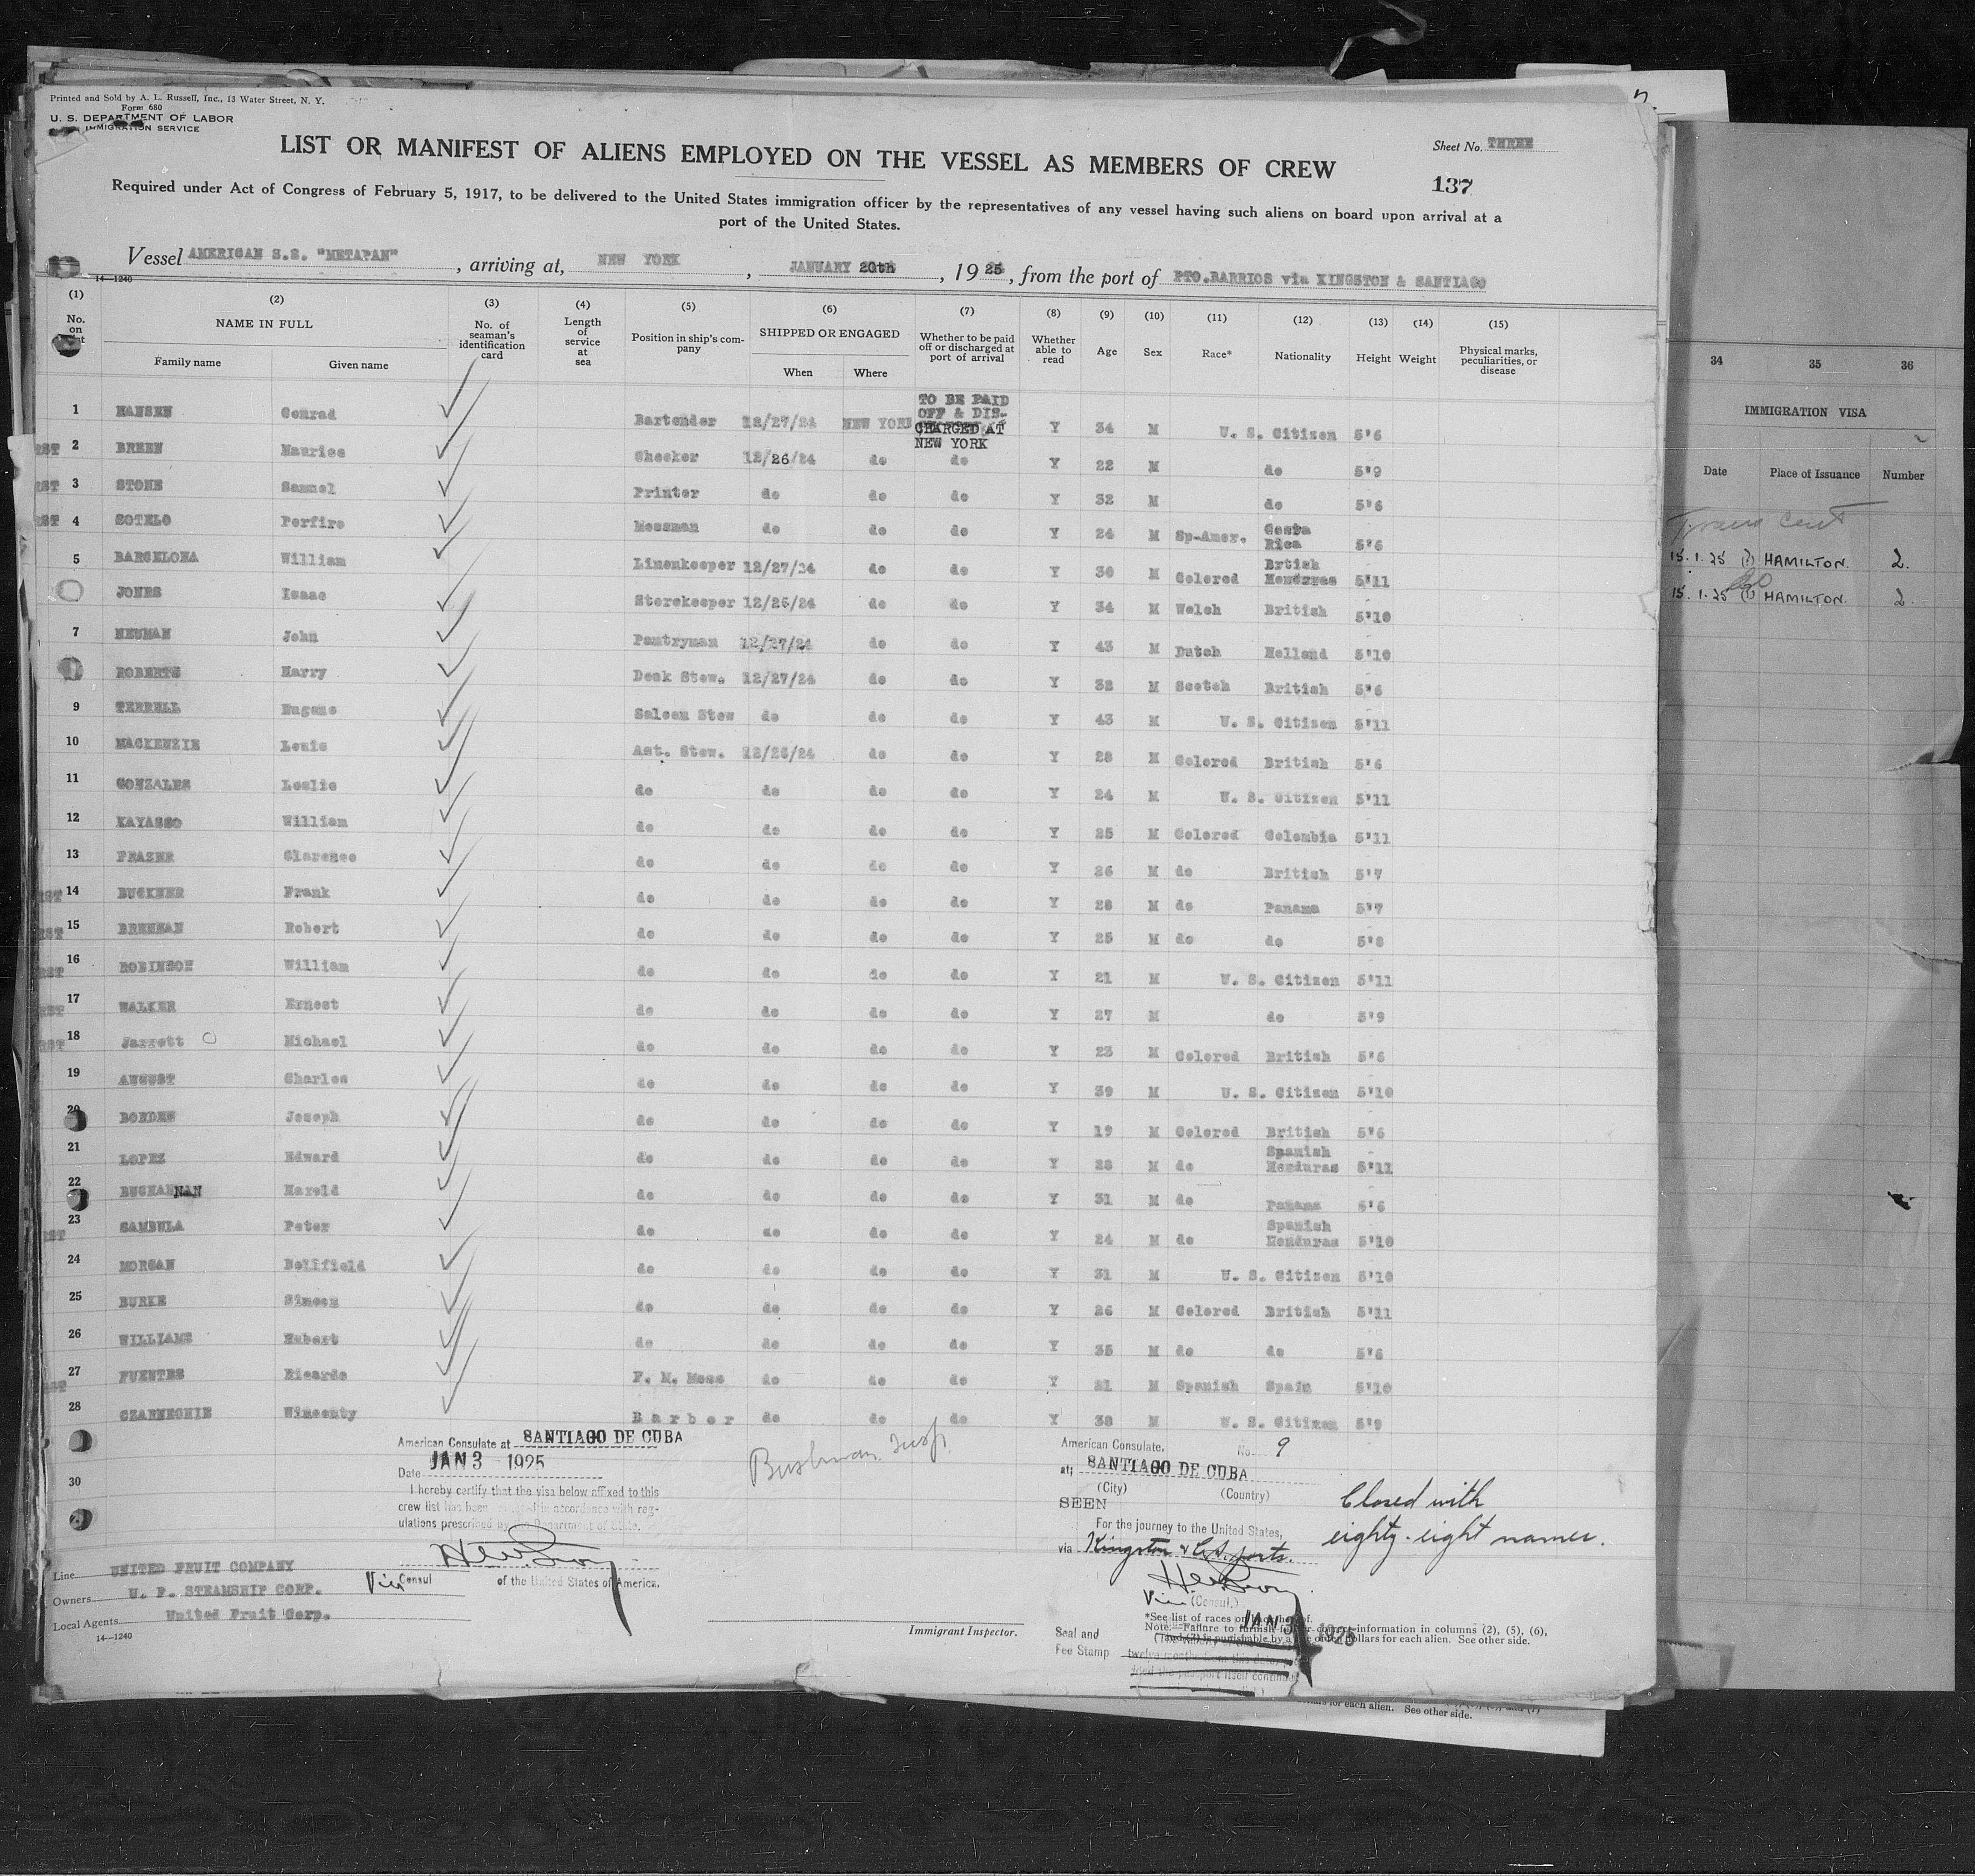 Printed and Sold by A. L. Russell, Inc., 13 Water Street, N. Y.
Form 680
U. S. DEPARTMENT OF LABOR
IMMIGRATION SERVICE
LIST OR MANIFEST OF ALIENS EMPLOYED ON THE VESSEL AS MEMBERS OF CREW
Sheet No. THREE
137
Required under Act of Congress of February 5, 1917, to be delivered to the United States immigration officer by the representatives of any vessel having such aliens on board upon arrival at a
port of the United States.
Vessel AMERICAN S.S. "METAPAN", arriving at, NEW YORK, JANUARY 20th, 1925, from the port of PTO.BARRIOS via KINGSTON & SANTIAGO
14—1240
(1) (2) (3) (4) (5) (6) (7) (8) (9) (10) (11) (12) (13) (14) (15)
No. on NAME IN FULL Family name Given name No. of seaman's identification card Length of service at sea Position in ship's company SHIPPED OR ENGAGED When Where Whether to be paid off or discharged at port of arrival Whether able to read Age Sex Race* Nationality Height Weight Physical marks, peculiarities, or disease
1 HANSEN Conrad Bartender 12/27/24 NEW YORK TO BE PAID OFF & DISCHARGED AT NEW YORK Y 34 M U. S. Citizen 5'6
2 BREEN Maurice Checker 12/26/24 do do Y 22 M do 5'9
3 STONE Samuel Printer do do do Y 32 M do 5'6
4 SOTELO Porfiro Messman do do do Y 24 M Sp-Amer. Costa Rica 5'6
5 BARCELONA William Linenkeeper 12/27/24 do do Y 30 M Colored Brtish Honduras 5'11
JONES Isaac Storekeeper 12/26/24 do do Y 34 M Welch British 5'10
7 NEUMAN John Pantryman 12/27/24 do do Y 43 M Dutch Holland 5'10
ROBERTS Harry Deck Stew. 12/27/24 do do Y 32 M Scotch British 5'6
9 TERRELL Eugene Saloon Stew do do do Y 43 M U. S. Citizen 5'11
10 MACKENZIE Louis Ast. Stew. 12/26/24 do do Y 28 M Colored British 5'6
11 GONZALES Leslie do do do do Y 24 M U. S. Citizen 5'11
12 KAYASSO William do do do do Y 25 M Colored Colombia 5'11
13 FRAZER Clarence do do do do Y 26 M do British 5'7
14 BUCKNER Frank do do do do Y 28 M do Panama 5'7
15 BRENNAN Robert do do do do Y 25 M do do 5'8
16 ROBINSON William do do do do Y 21 M U. S. Citizen 5'11
17 WALKER Ernest do do do do Y 27 M do 5'9
18 Jarrett Michael do do do do Y 23 M Colored British 5'6
19 AUGUST Charles do do do do Y 39 M U. S. Citizen 5'10
20 BORDEN Joseph do do do do Y 19 M Colored British 5'6
21 LOPEZ Edward do do do do Y 28 M do Spanish Honduras 5'11
22 BUCHANNAN Harold do do do do Y 31 M do Panama 5'6
23 SAMBULA Peter do do do do Y 24 M do Spanish Honduras 5'10
24 MORGAN Bellfield do do do do Y 31 M U. S. Citizen 5'10
25 BURKE Simeon do do do do Y 26 M Colored British 5'11
26 WILLIAMS Hubert do do do do Y 35 M do do 5'6
27 FUENTES Ricardo P. M. Mess do do do Y 21 M Spanish Spain 5'10
28 CZARNECHIE Wincenty Barber do do do Y 38 M U. S. Citizen 5'9
30
American Consulate at SANTIAGO DE CUBA
Date JAN 3 1925
I hereby certify that the visa below affixed to this
crew list has been in accordance with reg-
ulations prescribed by the Department of State.
Vice Consul of the United States of America.
American Consulate, No. 9
at; SANTIAGO DE CUBA
(City) (Country)
SEEN
For the journey to the United States,
via Kingston & C.A. ports.
Vice (Consul.)
JAN 3 1925
Closed with
eighty-eight names.
Line UNITED FRUIT COMPANY
Owners U. F. STEAMSHIP CORP.
Local Agents United Fruit Corp.
14—1240
Immigrant Inspector.
Seal and
Fee Stamp
*See list of races on back hereof.
Note.—Failure to furnish full or correct information in columns (2), (5), (6),
and (7) is punishable by a fine of ten dollars for each alien. See other side.
for each alien. See other side.
34 35 36
IMMIGRATION VISA
Date Place of Issuance Number
15.1.25 HAMILTON. 2.
15.1.25 HAMILTON. 2.